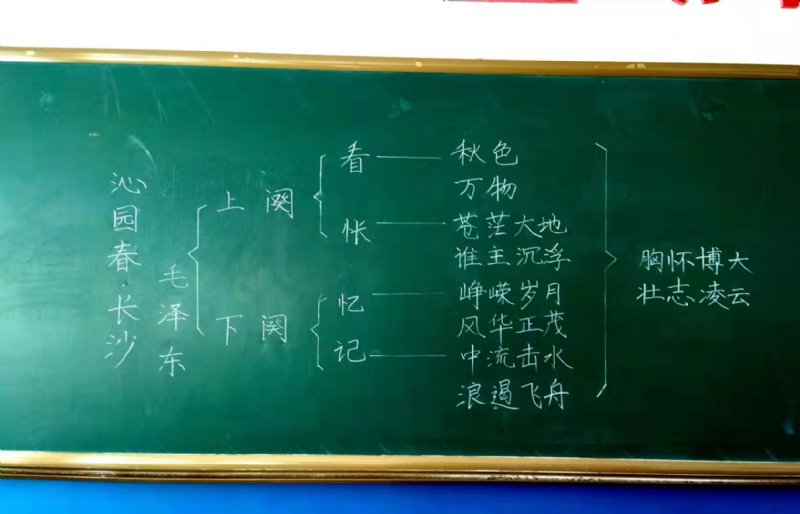 沁园春·长沙
毛泽东
上阕
看
秋色
万物
怅
苍茫大地
谁主沉浮
下阕
忆
峥嵘岁月
风华正茂
记
中流击水
浪遏飞舟
胸怀博大
壮志凌云